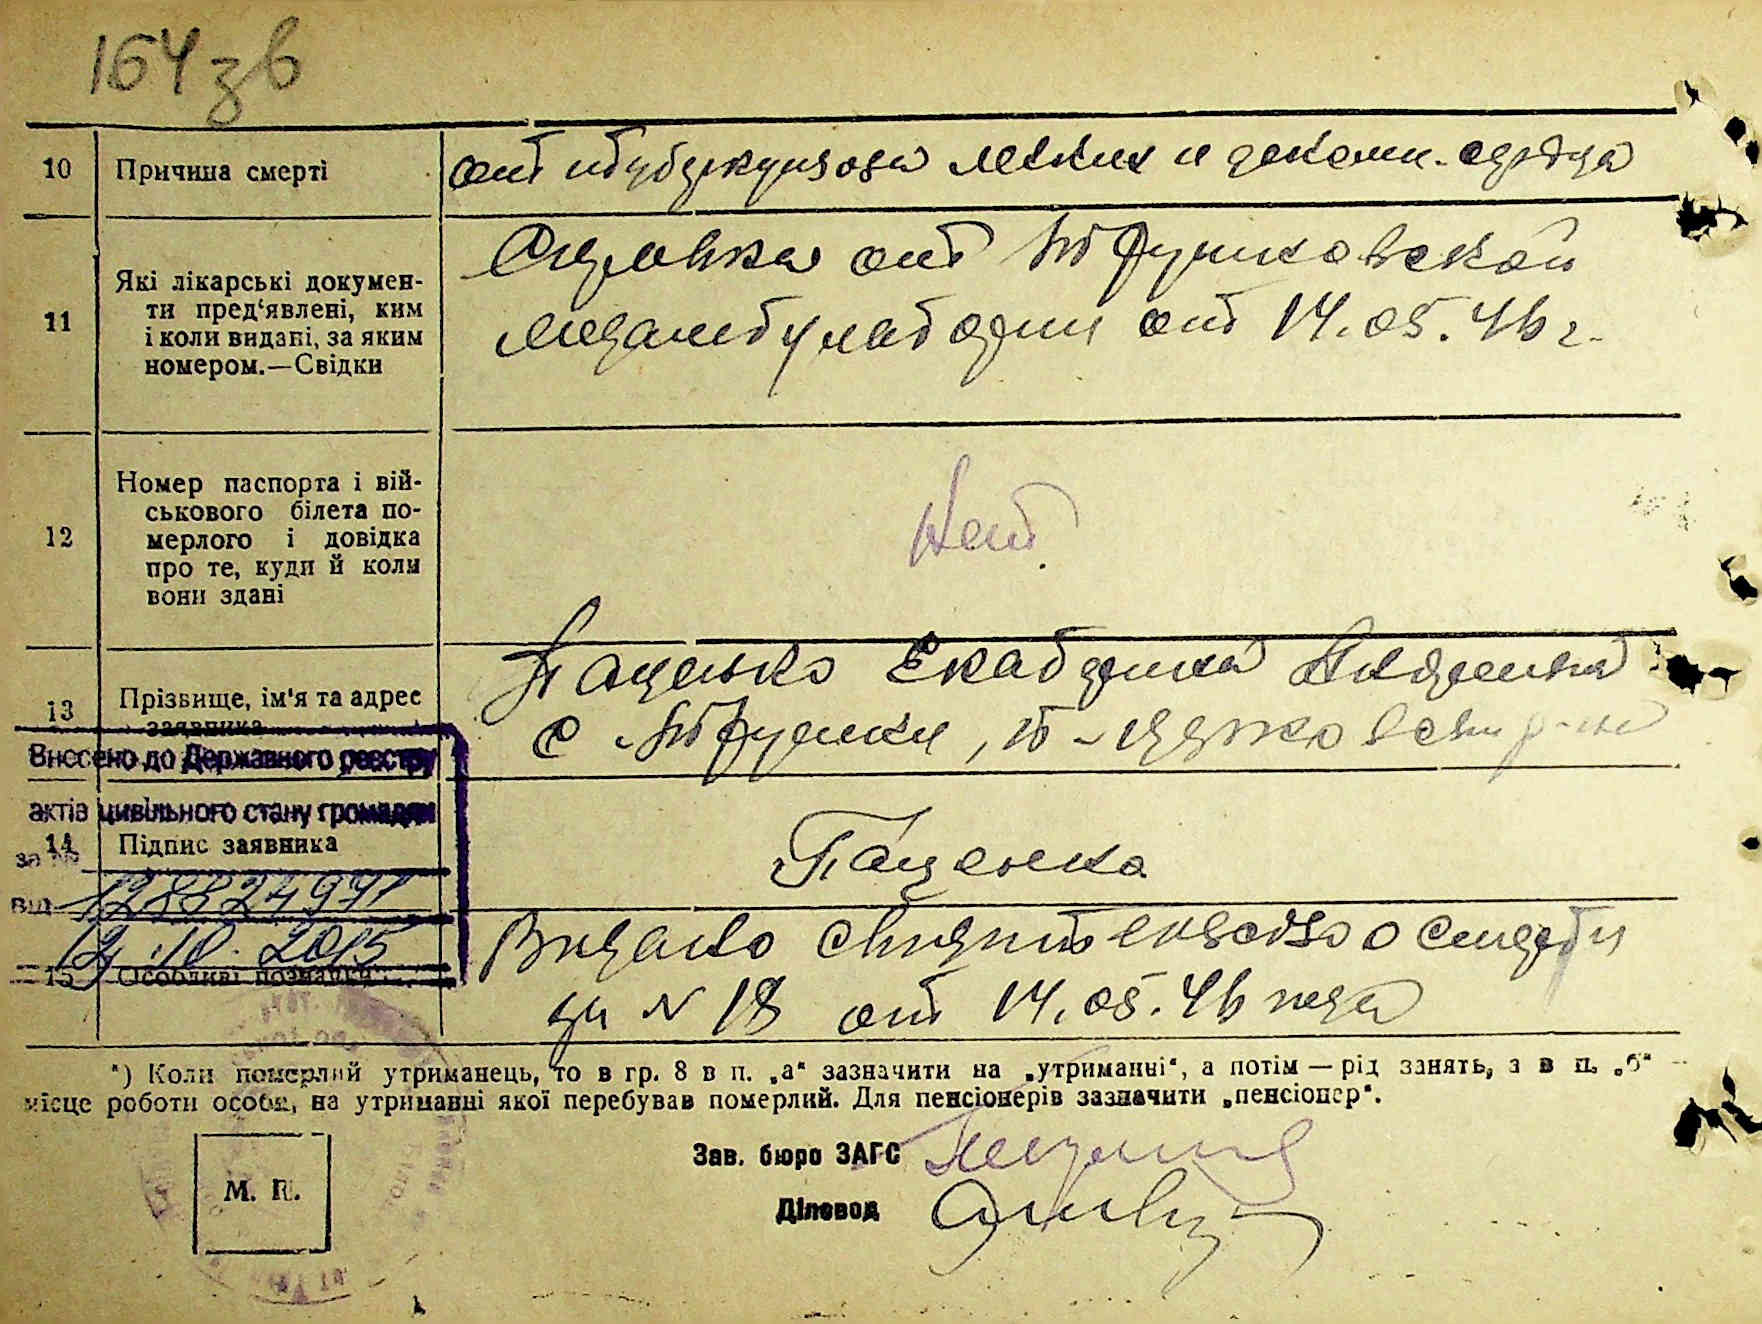 164 зв
10 Причина смерті от туберкулоза легких и деком. сердца
11 Які лікарські докумен-
ти пред‘явлені, ким
і коли видані, за яким
номером.—Свідки
Справка от
медамбулатории от 14.05.46 г.
12 Номер паспорта і вій-
ськового білета по-
мерлого і довідка
про те, куди й коли
вони здані
Нет
13 Прізвище, ім'я та адрес
заявника
Пащенко Екатерина
с
Внесено до Державного реєстру
актів цивільного стану громадян
14 Підпис заявника Пащенко
за №
від
12.10.2015
15 Особливі познаки
Выдано свидетельство о смерти
за № 18 от 14.05.46 года
*) Коли померлий утриманець, то в гр. 8 в п. „а“ зазначити на „утриманні“, а потім — рід занять, а в п. „б“ —
місце роботи особи, на утриманні якої перебував померлий. Для пенсіонерів зазначити „пенсіонер“.
Зав. бюро ЗАГС
М. П.
Діловод